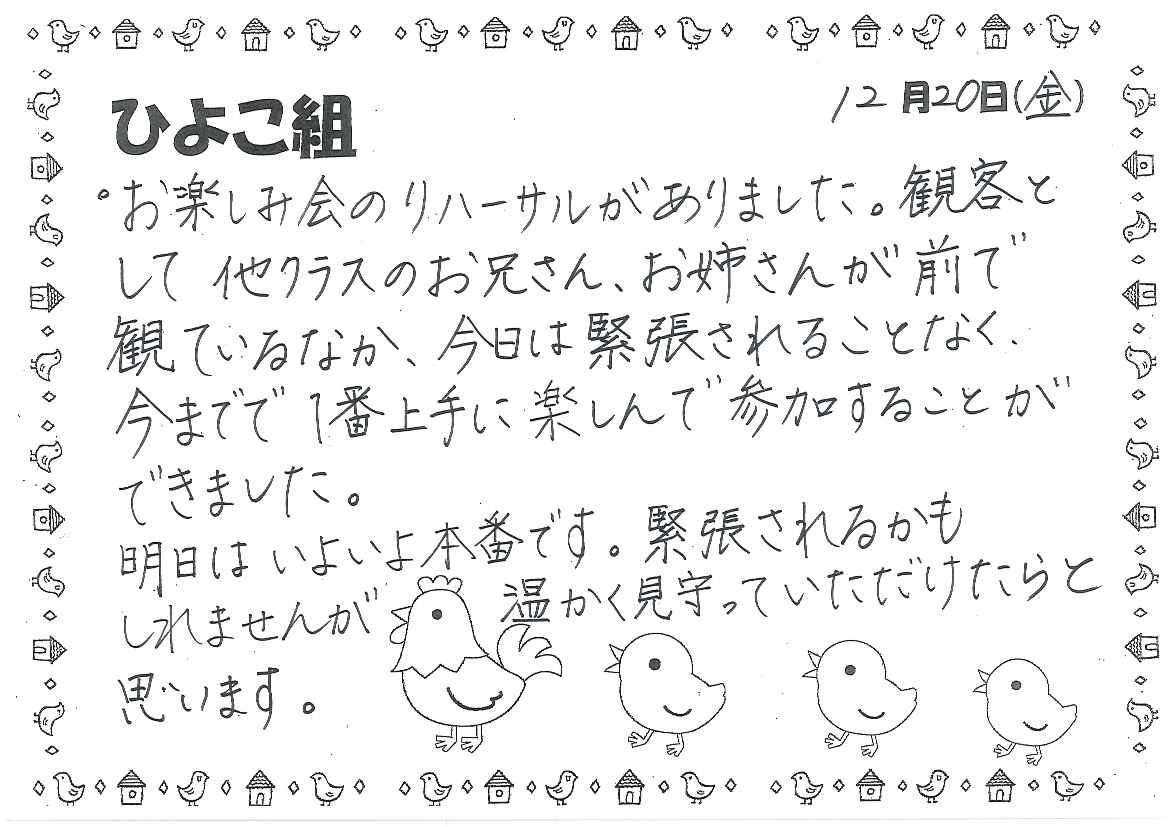 12月20日(金)
ひよこ組
。お楽しみ会のリハーサルがありました。観客と
して他クラスのお兄さん、お姉さんが前で
観ているなか、今日は緊張されることなく、
今までで1番上手に楽しんで参加することが
できました。
明日はいよいよ本番です。緊張されるかも
しれませんが 温かく見守っていただけたらと
思います。